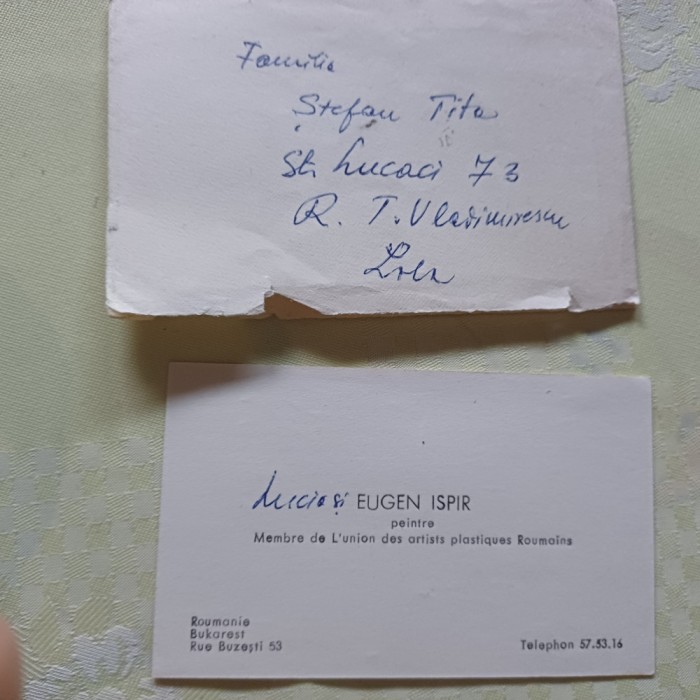 Familia
Ștefan Tita
Str. Lucaci 73
R. T. Vladimirescu
Loco
Lucia și EUGEN ISPIR
peintre
Membre de L'union des artists plastiques Roumains
Roumanie
Bukarest
Rue Buzești 53
Telephon 57.53.16